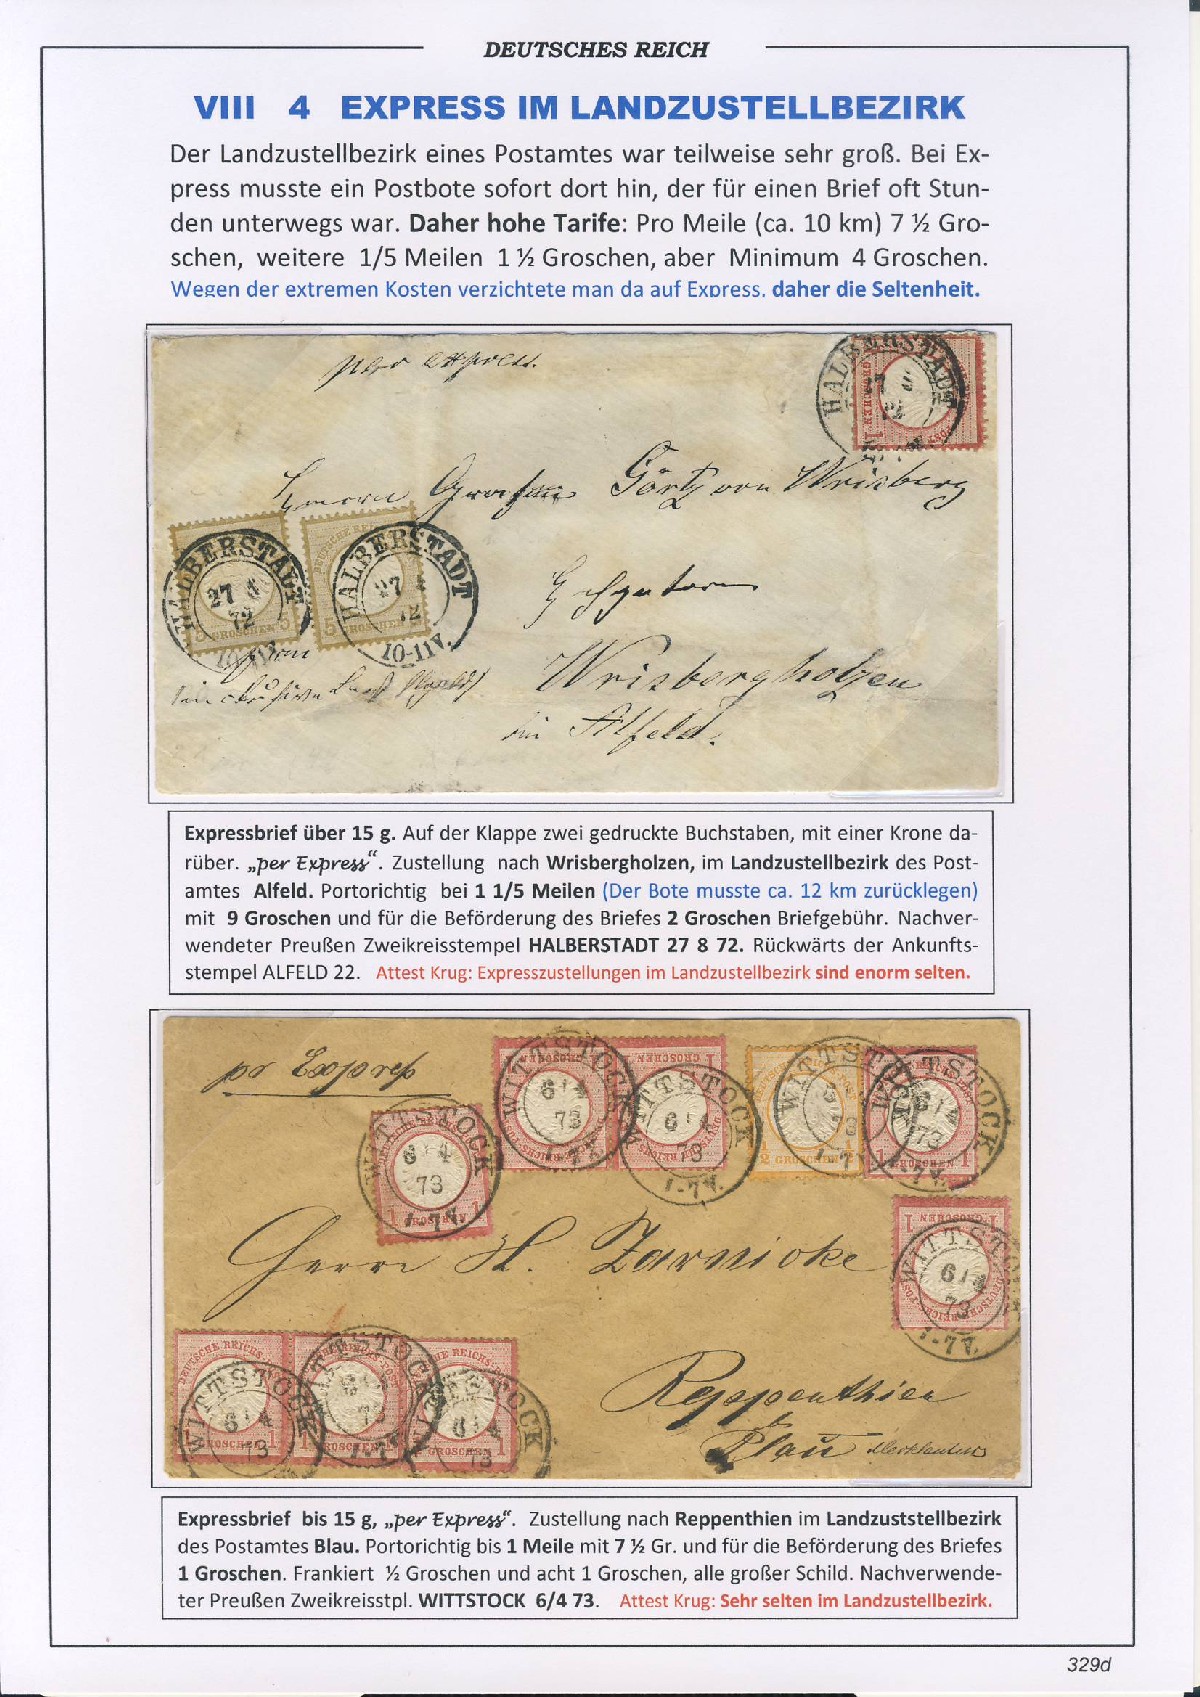 DEUTSCHES REICH
VIII 4 EXPRESS IM LANDZUSTELLBEZIRK
Der Landzustellbezirk eines Postamtes war teilweise sehr groß. Bei Ex-
press musste ein Postbote sofort dort hin, der für einen Brief oft Stun-
den unterwegs war. Daher hohe Tarife: Pro Meile (ca. 10 km) 7 ½ Gro-
schen, weitere 1/5 Meilen 1 ½ Groschen, aber Minimum 4 Groschen.
Wegen der extremen Kosten verzichtete man da auf Express, daher die Seltenheit.
per express.
HALBERSTADT
27 8
72
Görtz von Wrisberg
HALBERSTADT
27 8
72
5 GROSCHEN 5
HALBERSTADT
27
72
10-11V.
5 GROSCHEN
Wrisbergholzen
bei Alfeld.
Expressbrief über 15 g. Auf der Klappe zwei gedruckte Buchstaben, mit einer Krone da-
rüber. „per Express“. Zustellung nach Wrisbergholzen, im Landzustellbezirk des Post-
amtes Alfeld. Portorichtig bei 1 1/5 Meilen (Der Bote musste ca. 12 km zurücklegen)
mit 9 Groschen und für die Beförderung des Briefes 2 Groschen Briefgebühr. Nachver-
wendeter Preußen Zweikreisstempel HALBERSTADT 27 8 72. Rückwärts der Ankunfts-
stempel ALFELD 22. Attest Krug: Expresszustellungen im Landzustellbezirk sind enorm selten.
pr Express
WITTSTOCK
6/4
73
1-7V.
WITTSTOCK
6/4
73
1-7V.
WITTSTOCK
6/4
73
1-7V.
WITTSTOCK
6/4
73
1-7V.
WITTSTOCK
6/4
73
1-7V.
Herrn H. Zarnicke
WITTSTOCK
6/4
73
1-7V.
Reppenthien
b
Plau Mecklenburg
WITTSTOCK
6/4
73
Expressbrief bis 15 g, „per Express“. Zustellung nach Reppenthien im Landzuststellbezirk
des Postamtes Blau. Portorichtig bis 1 Meile mit 7 ½ Gr. und für die Beförderung des Briefes
1 Groschen. Frankiert ½ Groschen und acht 1 Groschen, alle großer Schild. Nachverwende-
ter Preußen Zweikreisstpl. WITTSTOCK 6/4 73. Attest Krug: Sehr selten im Landzustellbezirk.
329d